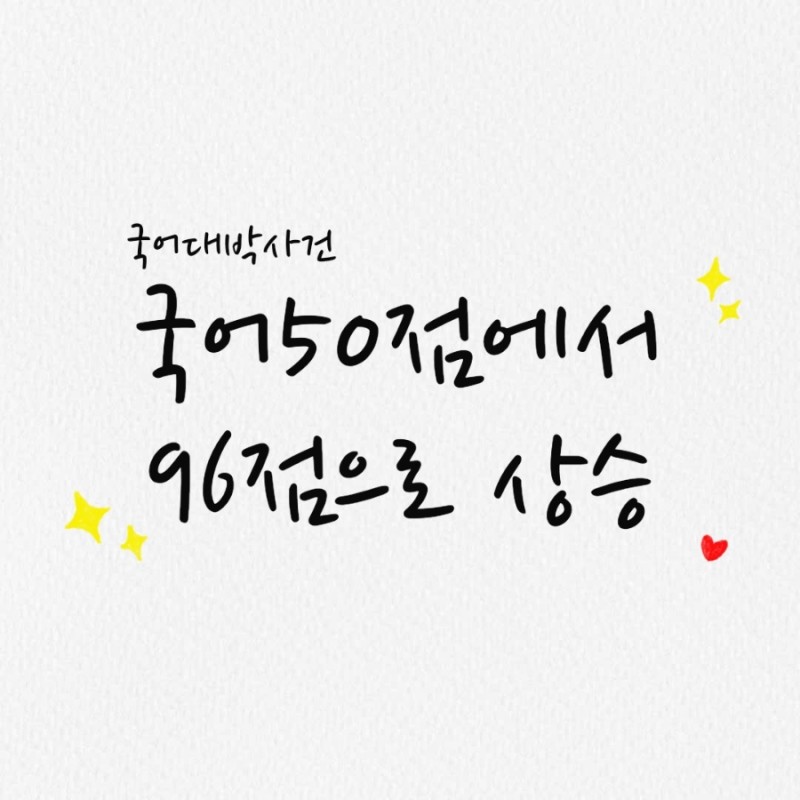 국어대박사건
국어50점에서
96점으로 상승